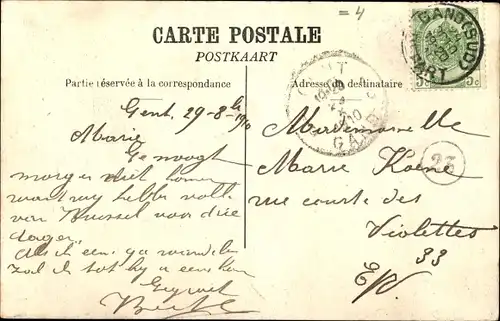 = 4
CARTE POSTALE
POSTKAART
Partie réservée à la correspondance
Adresse du destinataire
GAND (SUD)
DÉPART
GENT
GAND
5c 5c
23
Gent, 29-8-1910
Marie
Ge moogt
morgen niet komen
want wy hebben volk
van Brussel voor drie
dagen,
als ik eens ga wandelen
zal ik tot by u eens kom
Gegroet
Mademoiselle
Marie Koene
rue courte des
Violettes
33
E/V.